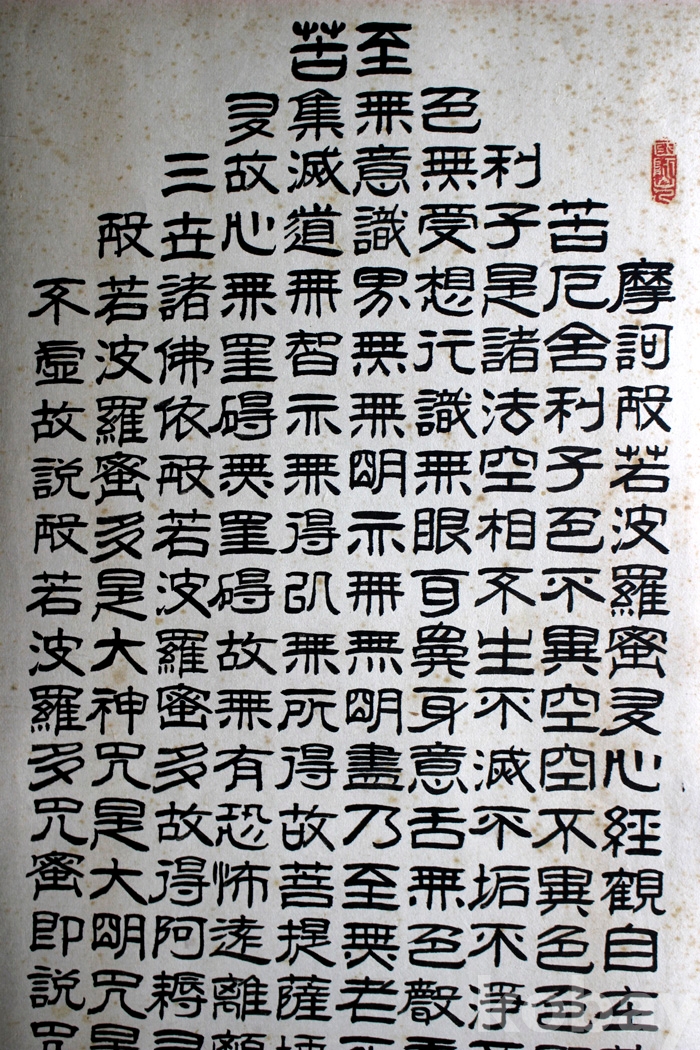 摩訶般若波羅蜜多心經觀自在
苦厄舍利子色不異空空不異色色
利子是諸法空相不生不滅不垢不淨
色無受想行識無眼耳鼻身意舌無色聲
至無意識界無無明亦無無明盡乃至無老
苦集滅道無智亦無得以無所得故菩提薩埵
多故心無罣碍無罣碍故無有恐怖遠離顛
三世諸佛依般若波羅蜜多故得阿耨多
般若波羅蜜多是大神咒是大明咒是
不虛故說般若波羅多咒蜜即說咒